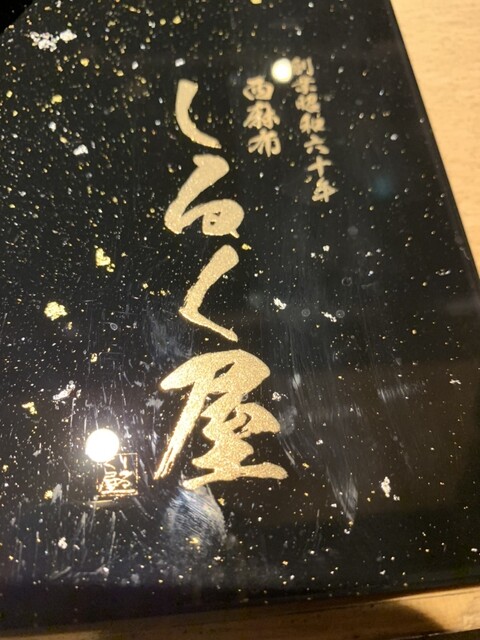 創業昭和六十年
西麻布
しるく屋